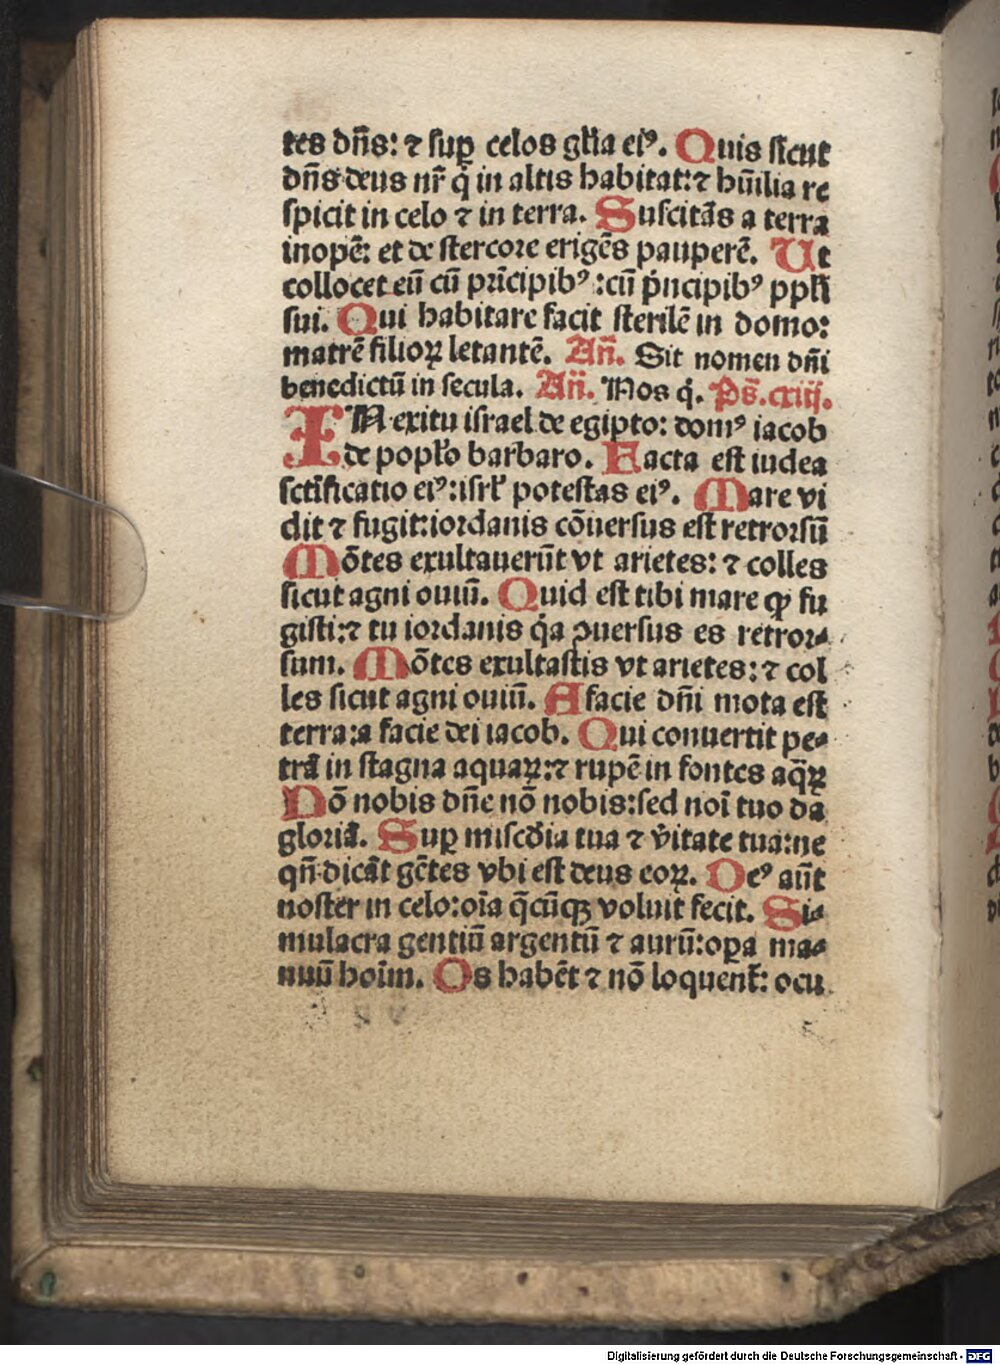 tes dn̄s: ⁊ suꝑ celos gl̄ia eiꝰ. Quis sicut
dn̄s deus nr̄ q̇ in altis habitat:⁊ hūilia re
spicit in celo ⁊ in terra. Suscitās a terra
inopē: et de stercore erigēs pauperē. Ut
collocet eū cū prīcipibꝰ :cū p̄ncipibꝰ ppl̄i
sui. Qui habitare facit sterilē in domo:
matrē filioꝝ letantē. Añ. Sit nomen dn̄i
benedictū in secula. Añ. Nos q̇. Ps̄.cxiij.
IN exitu israel de egipto: domꝰ iacob
de popl̄o barbaro. Facta est iudea
sctīficatio eiꝰ:isrl̄ potestas eiꝰ. Mare vi
dit ⁊ fugit:iordanis cōuersus est retrorsū
Mōtes exultauerūt vt arietes: ⁊ colles
sicut agni ouiū. Quid est tibi mare ꝙ fu
gisti:⁊ tu iordanis q̄a ↄuersus es retror⸗
sum. Mōtes exultastis vt arietes:⁊ col
les sicut agni ouiū. A facie dn̄i mota est
terra:a facie dei iacob. Qui conuertit pe⸗
trā in stagna aquaꝝ:⁊ rupē in fontes aq̄ꝝ
Nō nobis dn̄e nō nobis:sed noī tuo da
gloriā. Suꝑ misc̄dia tua ⁊ v̄itate tua:ne
qn̄ dicāt gētes vbi est deus eoꝝ. Deꝰ aūt
noster in celo:oīa q̄cūqꝫ voluit fecit. Si⸗
mulacra gentiū argentū ⁊ aurū:oꝑa ma⸗
nuū hoīm. Os habēt ⁊ nō loquent̄: ocu
Digitalisierung gefördert durch die Deutsche Forschungsgemeinschaft - DFG